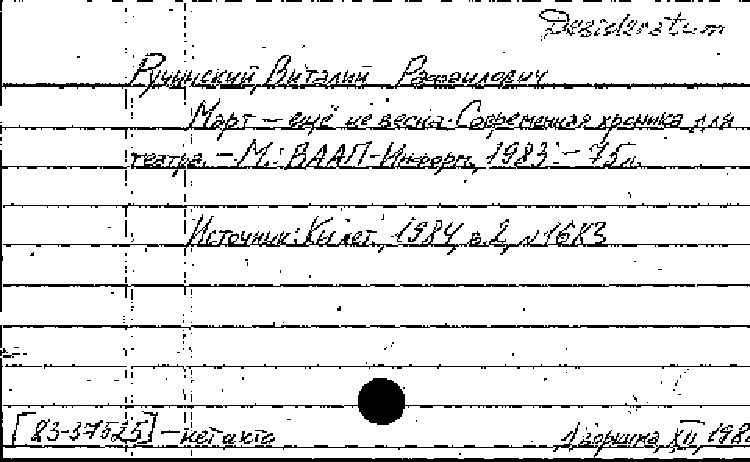 Desideratum
Ручинский, Виталий Рафаилович
Март — ещё не весна: Современная хроника для
театра. — М.: ВААП-Информ, 1983. — 75 л.
Источник: Кн. лет., 1984, в. 2, N 16К3
[83-37525] — нет акта
XII, 198